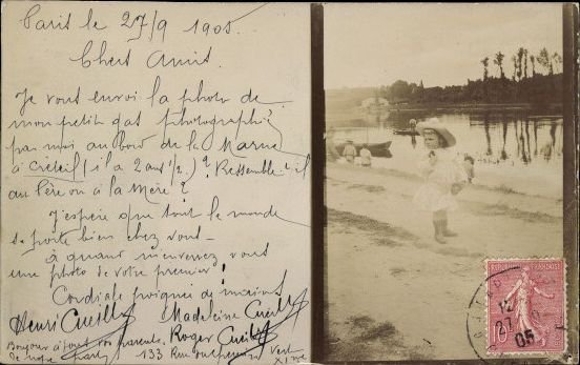 Paris le 27/9 1905
Chers Amis
Je vous envoi la photo de
mon petit gas photographié
par moi au bord de la Marne
à Créteil (il a 2 ans 1/2.) Ressemble-t-il
au Père ou à la Mère ?
J'espère que tout le monde
se porte bien chez vous -
à quand m'enverrez vous
une photo de votre premier !
Cordiale poignée de mains
Henri Cueilly Madeleine Cueilly
Roger Cueilly
Bonjour à tous vos parents
de notre part
133 Rue du Chemin Vert
XIme
REPUBLIQUE FRANÇAISE
10
12
27
05